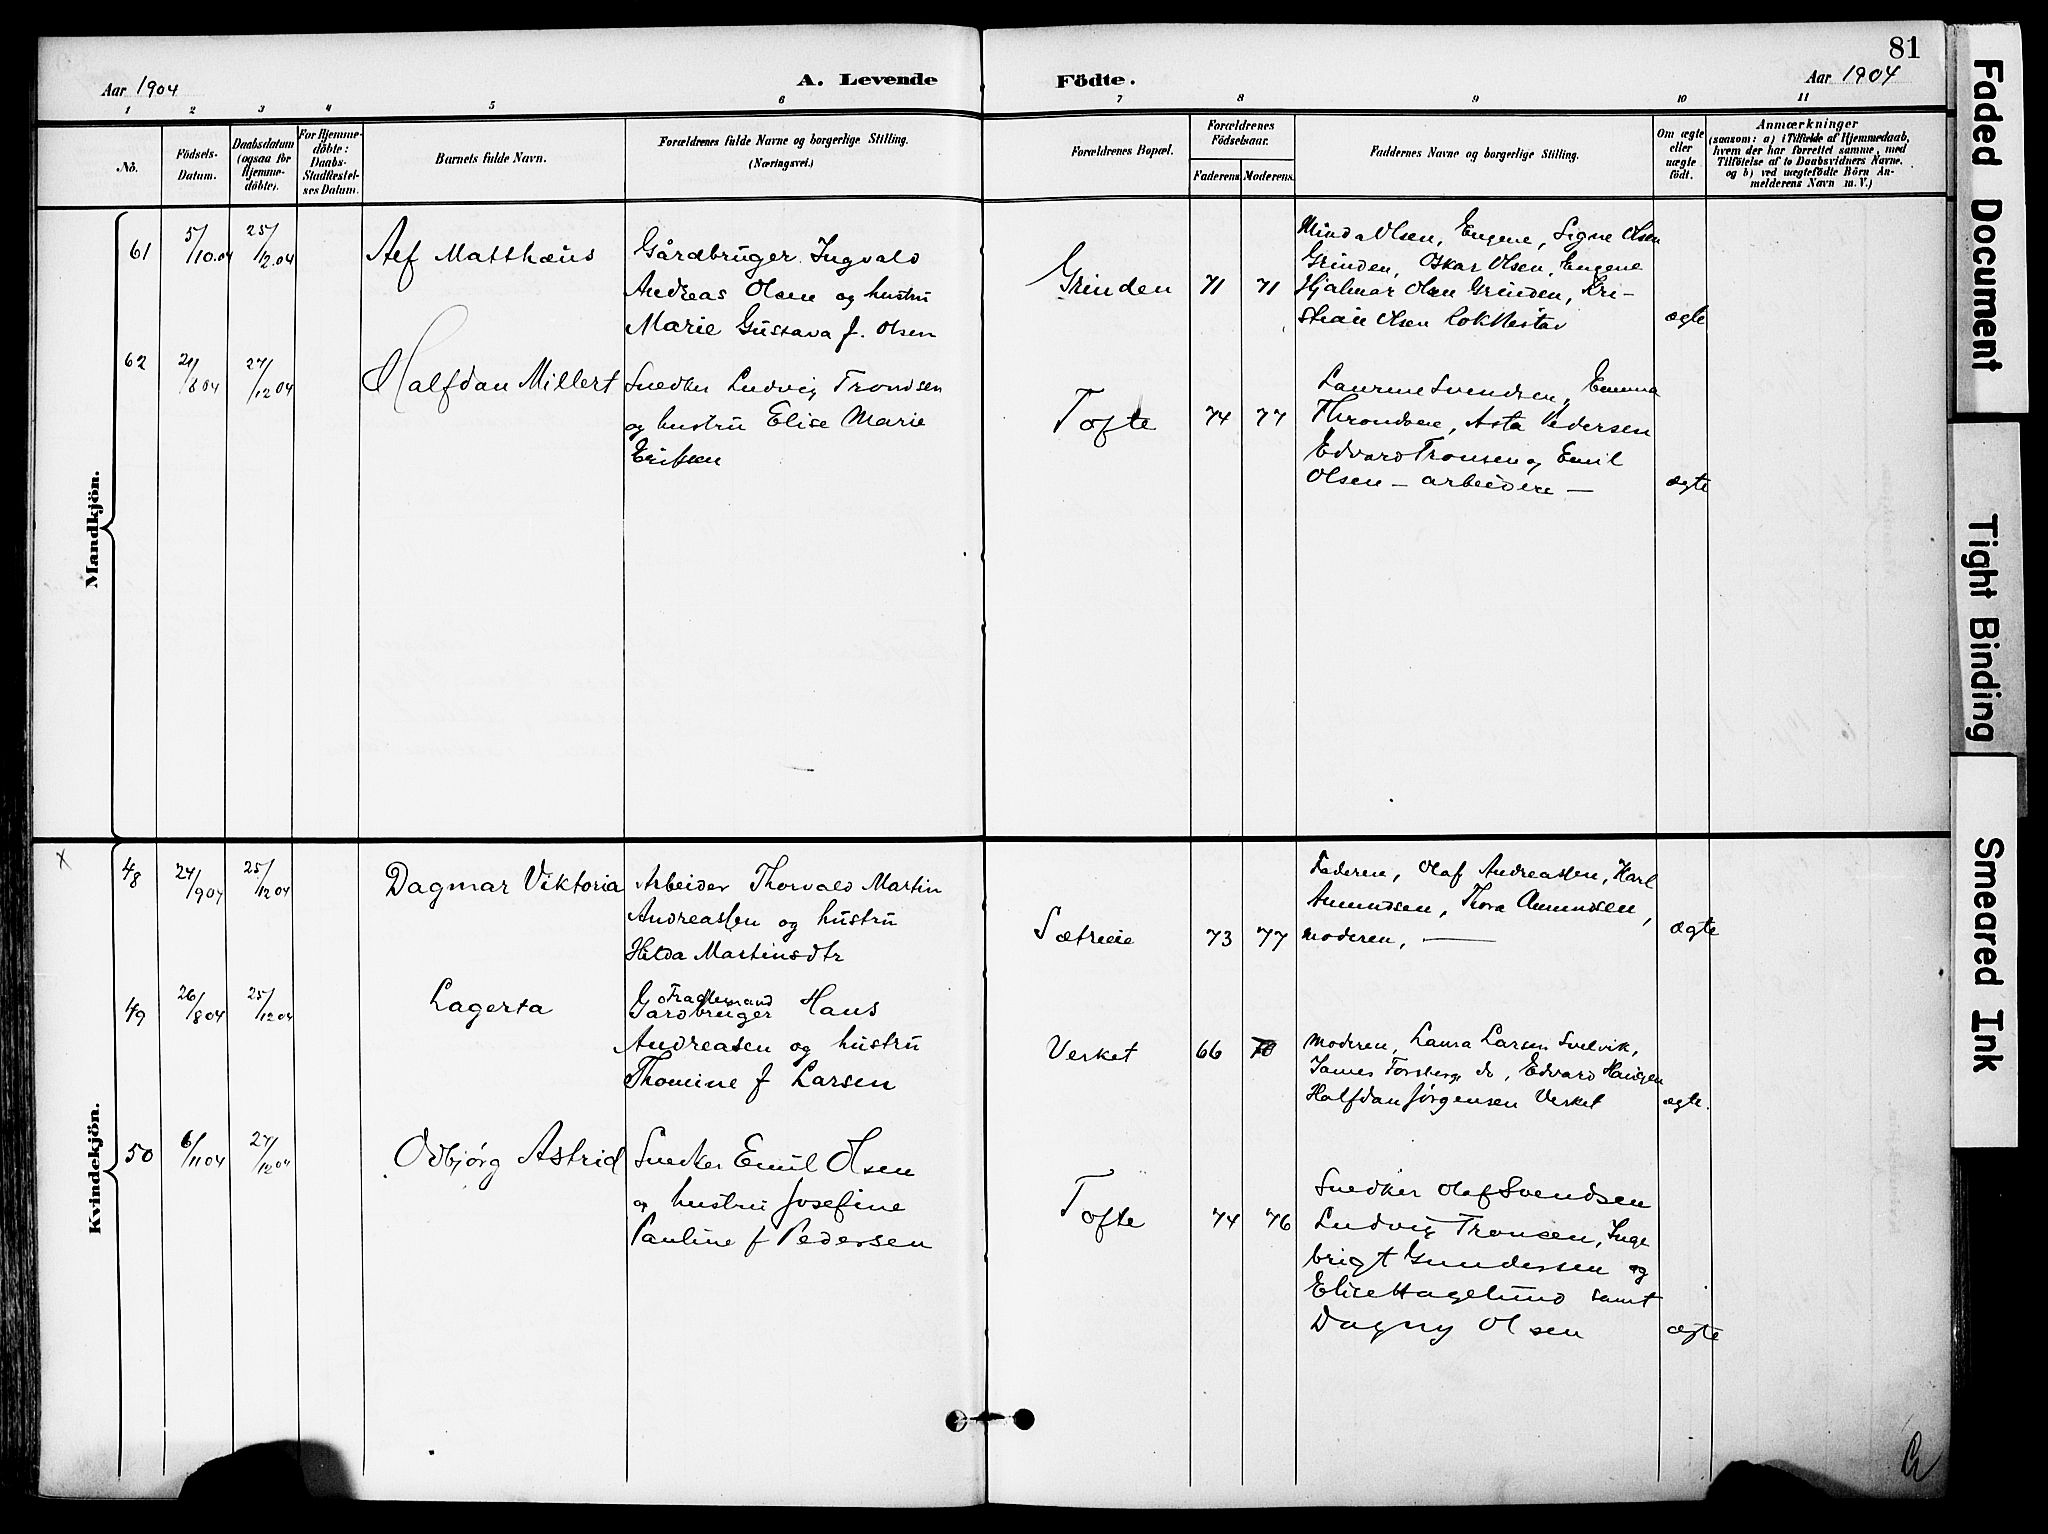 81
Aar 1904
A. Levende
Födte.
Aar 1904
1 2 3 4 5 6 7 8 9 10 11
No.
Födsels-
Datum.
Daabsdatum
(ogsaa for
Hjemme-
döbte).
For Hjemme-
döbte:
Daabs-
Stadfæstel-
ses Datum.
Barnets fulde Navn.
Forældrenes fulde Navne og borgerlige Stilling.
(Næringsvei.)
Forældrenes Bopæl.
Forældrenes
Födselsaar.
Faderens. Moderens.
Faddernes Navne og borgerlige Stilling.
Om ægte
eller
uægte
födt.
Anmærkninger
(saasom: a) i Tilfælde af Hjemmedaab,
hvem der har forrettet samme, med
Tilföielse af to Daabsvidners Navne.
og b) ved uægtefödte Börn An-
melderens Navn m. V.)
Mandkjön.
61
5/10.04
25/12.04
Alf Matthæus
Gårdbruger Ingvald
Andreas Olsen og hustru
Marie Gustava f. Olsen
Grinden
71
71
Minda Olsen, Eugene, Signe Olsen
Grinden, Oskar Olsen, Eugene
Hjalmar Olsen Grinden, Kri-
stian Olsen
ægte
62
27/12 04
Halfdan Millert
Snedker Ludvig Trondsen
og hustru Elise Marie
Eriksen
Tofte
74
77
Laurine Svendsen, Emma
Throndsen, Asta Pedersen
Edvard Tronsen og Emil
Olsen – arbeidere –
ægte
Kvindekjön.
x
48
24/9 04
25/12 04
Dagmar Viktoria
Arbeider Thorvald Martin
Andreassen og hustru
Hilda Martinsdtr
Sætreie
73
77
Faderen, Olaf Andreassen, Karl
Amundsen, Thora Amundsen,
moderen, —
ægte
49
26/8 04
25/12 04
Lagerta
Fragtemand
Gardbruger Hans
Andreasen og hustru
Thomine f Larsen
Verket
66
70
Moderen, Laura Larsen Svelvik,
James Forsberg do, Edvard Haugen
Halfdan Jørgensen Verket
ægte.
50
6/11 04
27/12 04
Odbjørg Astrid
Snedker Emil Olsen
og hustru Josefine
Pauline f Pedersen
Tofte
74
76
Snedker Olaf Svendsen
Ludvig Tronsen, Inge
brigt Gundersen og
Elise Hagelund samt
Dagny Olsen
ægte
Faded Document
Tight Binding
Smeared Ink